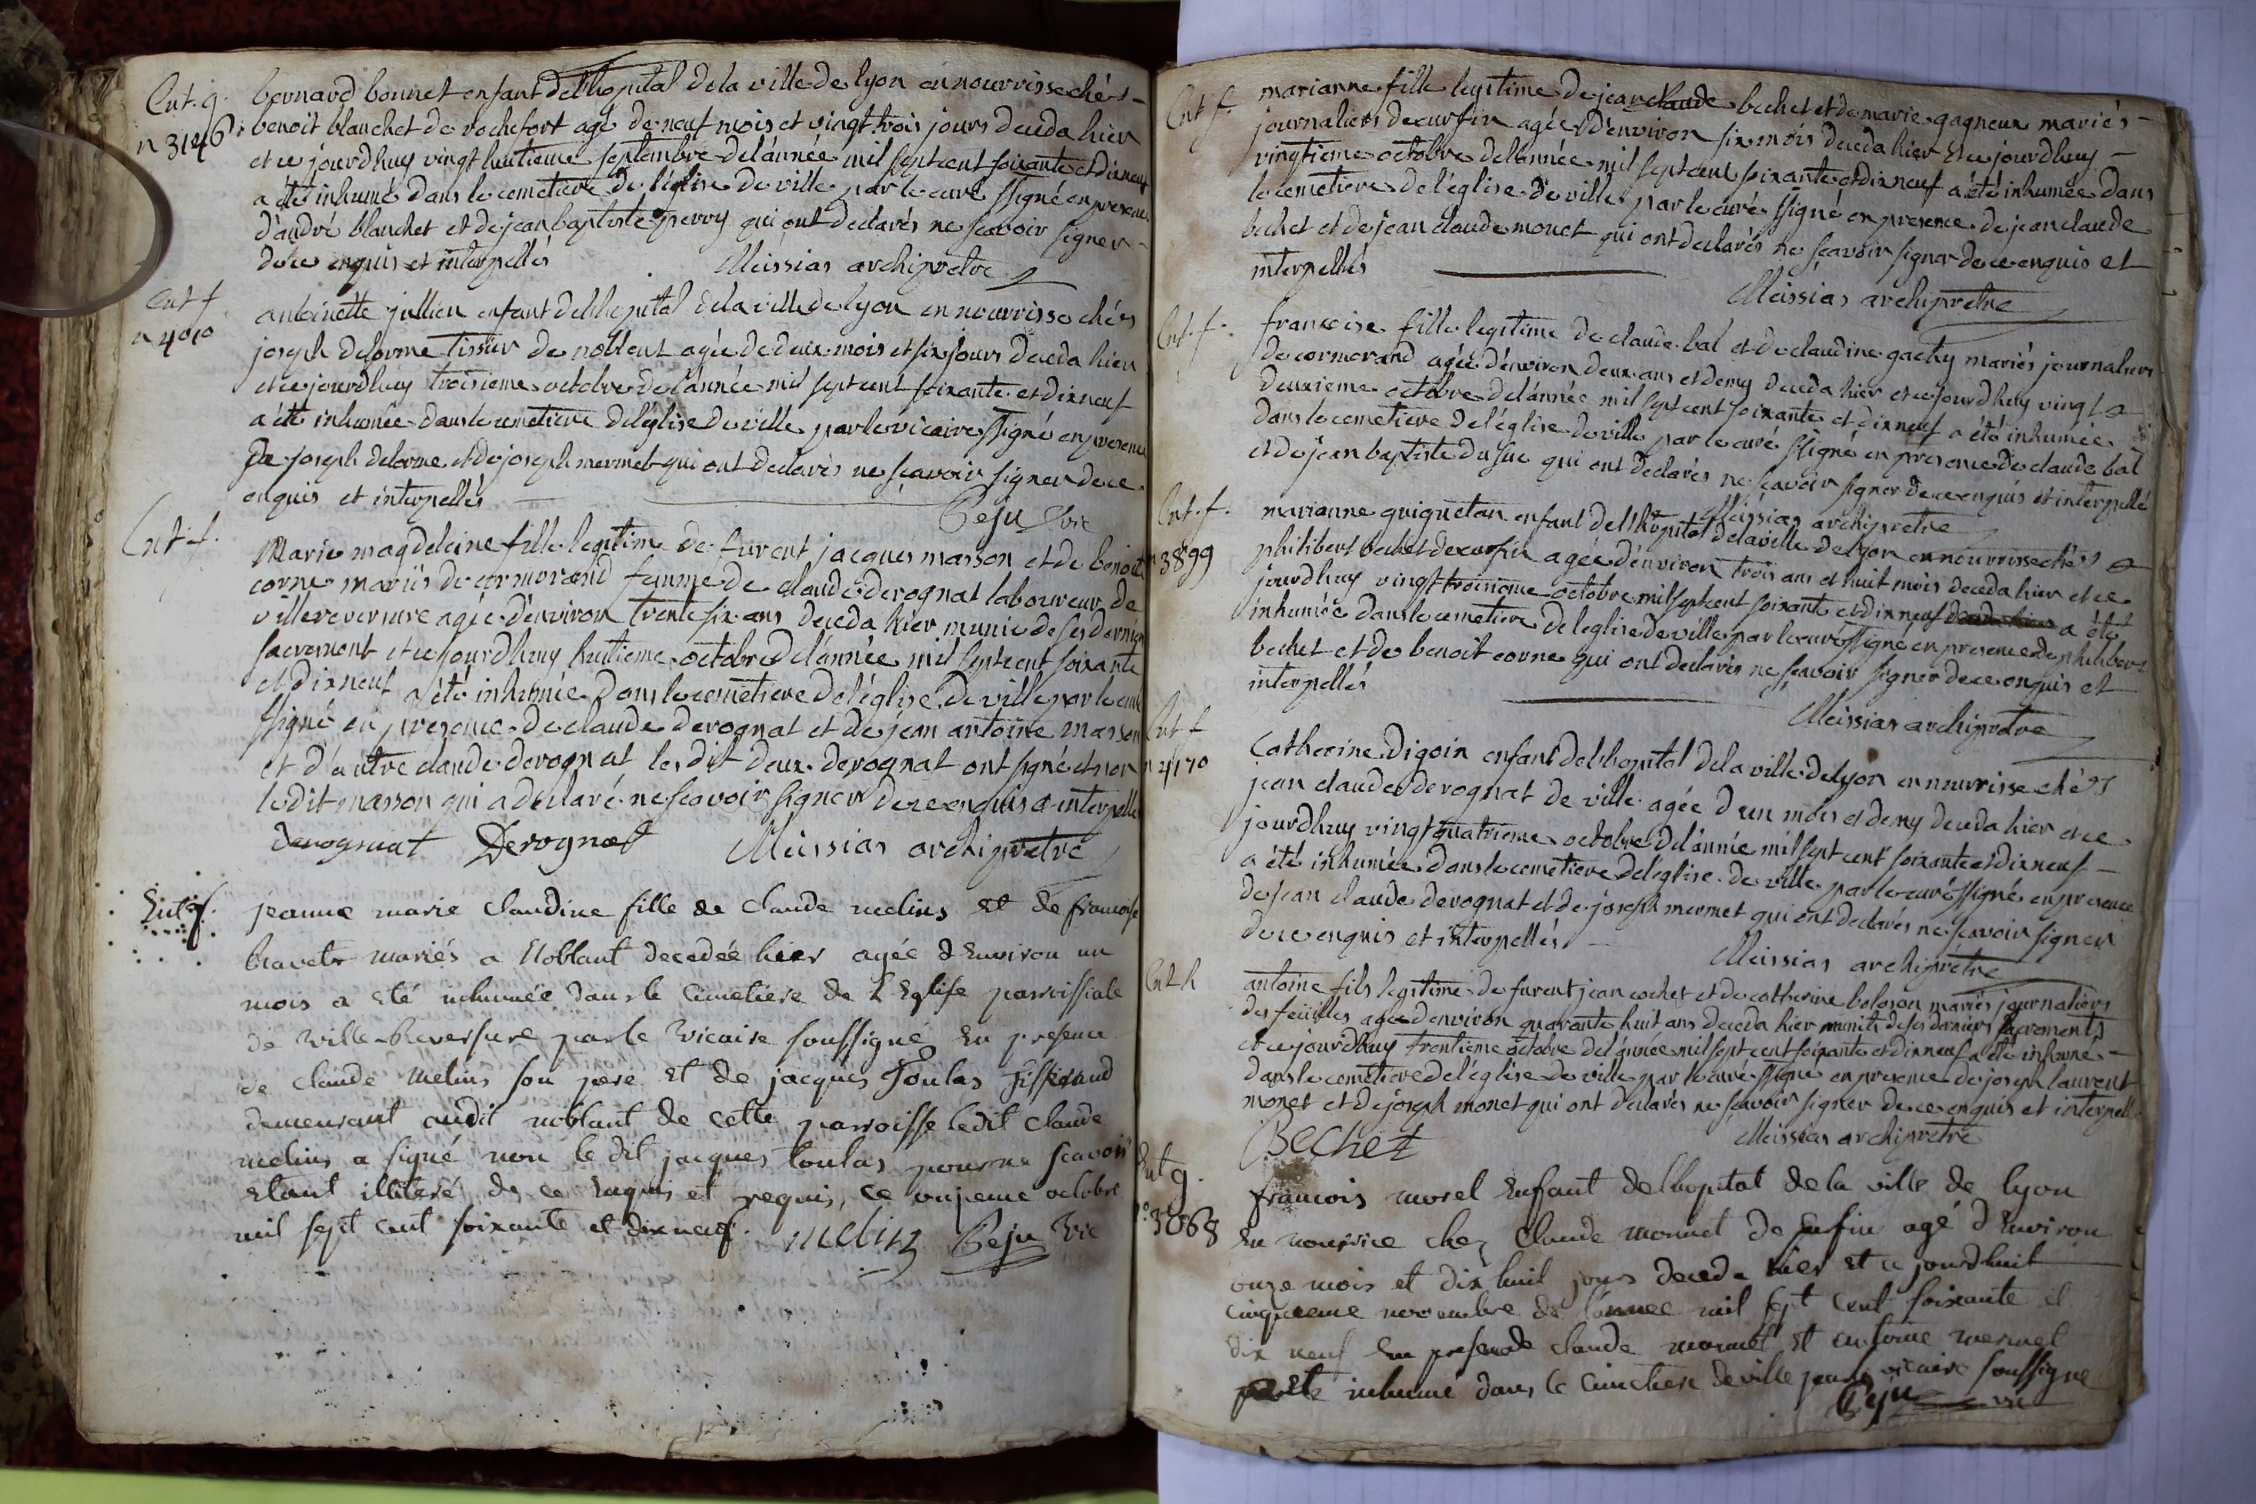 Ent. g.
n 3146
bernard bonnet enfant de l'hopital de la ville de lyon en nourrisse chés
benoit blanchet de rochefort agé de neuf mois et vingt trois jours deceda hier
et ce jourdhuy vingt huitieme septembre de l'année mil sept cent soixante et dix neuf
a été inhumé dans le cemetiere de l'église de ville par le curé ssigné en presence
d'andré blanchet et de jean baptiste perroy qui ont declarés ne scavoir signer
de ce enquis et interpellés Meissias archipretre
Ent f
n 4010
antoinette jullien enfant de l'hopital de la ville de lyon en nourrisse chés
joseph delorme tissier de noblent agée de deux mois et six jours deceda hier
et ce jourdhuy troisieme octobre de l'année mil sept cent soixante et dix neuf
a été inhumée dans le cemetiere de l'église de ville par le vicaire ssigné en presence
de joseph delorme et de joseph mermet qui ont declarés ne scavoir signer de ce
enquis et interpellés Peju vic
Ent f.
Marie magdeleine fille legitime de furent jacques masson et de benoite
corne mariés de cormorand femme de claude derognat laboureur de
villereversure agée d'environ trente six ans deceda hier munie de ses derniers
sacrement et ce jourdhuy huitieme octobre de l'année mil sept cent soixante
et dix neuf a été inhumée dans le cemetiere de l'église de ville par le curé
ssigné en presence de claude derognat et de jean antoine masson
et d'autre claude derognat les dit deux derognat ont signé et non
le dit masson qui a declaré ne scavoir signer de ce enquis et interpellé
derognat Derognat Meissias archipretre
Ent f.
jeanne marie claudine fille de claude melins et de francoise
bravet mariés a Noblant decedée hier agée d Environ un
mois a eté inhumée dans le Cimetiere de L Eglise parroissiale
de ville-Reversure par le vicaire soussigné En presence
de claude melins son pere Et de jacques Toulas Tisserand
demeurant audit noblant de cette parroisse ledit claude
melins a signé non le dit jacques toulas pour ne scavoir
Etant illiteré de ce Enquis et requis, ce onzieme octobre
mil sept cent soixante et dix neuf. melins Peju Vic
Ent f.
marianne fille legitime de jean claude bechet et de marie gagneur mariés
journaliers de curfin agée d'environ six mois deceda hier et ce jourdhuy
vingtieme octobre de l'année mil sept cent soixante et dix neuf a été inhumée dans
le cemetiere de l'église de ville par le curé ssigné en presence de jean claude
bechet et de jean claude monet qui ont declarés ne scavoir signer de ce enquis et
interpellés Meissias archipretre
Ent. f.
francoise fille legitime de claude bal et de claudine gachy mariés journaliers
de cormorand agée d'environ deux ans et demy deceda hier et ce jourdhuy vingt
deuxieme octobre de l'année mil sept cent soixante et dix neuf a été inhumée
dans le cemetiere de l'église de ville par le curé ssigné en presence de claude bal
et de jean baptiste dusuc qui ont declarés ne scavoir signer de ce enquis et interpellé
Meissias archipretre
Ent. f.
n 3899
marianne guiguetan enfant de l'hopital de la ville de lyon en nourrisse chés
philibert bechet de curfin agée d'environ trois ans et huit mois deceda hier et ce
jourdhuy vingt troisieme octobre mil sept cent soixante et dix neuf a été
inhumée dans le cemetiere de l'eglise de ville par le curé ssigné en presence de philibert
bechet et de benoit corne qui ont declarés ne scavoir signer de ce enquis et
interpellés Meissias archipretre
Ent f
n 4170
Catherine digoin enfant de l'hopital de la ville de lyon en nourrisse chés
jean claude derognat de ville agée d'un mois et demy deceda hier et ce
jourdhuy vingt quatrieme octobre de l'année mil sept cent soixante et dix neuf
a été inhumée dans le cemetiere de l'église de ville par le curé ssigné en presence
de jean claude derognat et de joseph mermet qui ont declarés ne scavoir signer
de ce enquis et interpellés Meissias archipretre
Ent h
antoine fils legitime de furent jean cochet et de catherine boloson mariés journaliers
des feüilles agée d'environ quarante huit ans deceda hier munit de ses derniers sacrements
et ce jourdhuy trentieme octobre de l'année mil sept cent soixante et dix neuf a été inhumé
dans le cemetiere de l'église de ville par le curé ssigné en presence de joseph laurent
monet et de joseph monet qui ont declarés ne scavoir signer de ce enquis et interpellé
Bechet Meissias archipretre
Ent g.
n° 3068
francois morel Enfant de l hopital de la ville de lyon
En nourrice chez claude monnet de agé d Environ
onze mois et dix huit jours deceda hier Et ce jourdhuit
cinquieme novembre de l'année mil sept cent soixante et
dix neuf En presence de claude monnet Et antoine mermet
a Eté inhumé dans le cimetiere de ville par le vicaire soussigne
Peju vic